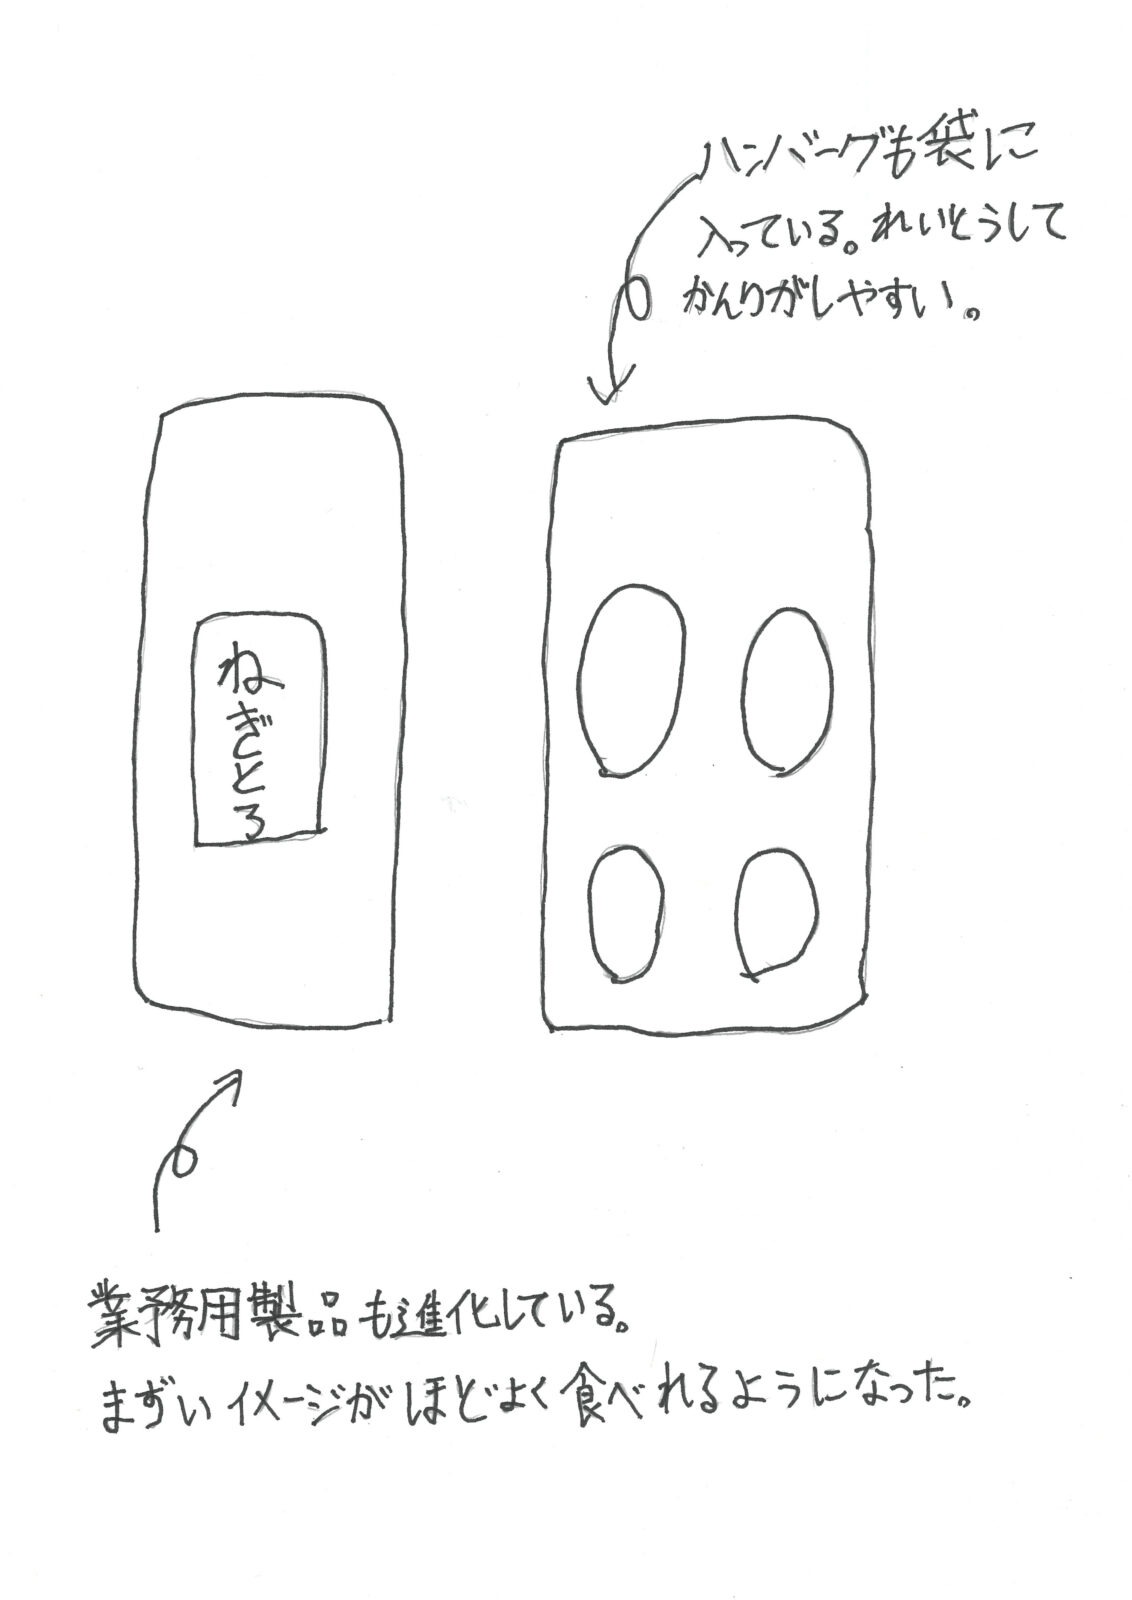 ハンバーグも袋に
入っている。れいとうして
かんりがしやすい。
ねぎとろ
業務用製品も進化している。
まずいイメージがほどよく食べれるようになった。